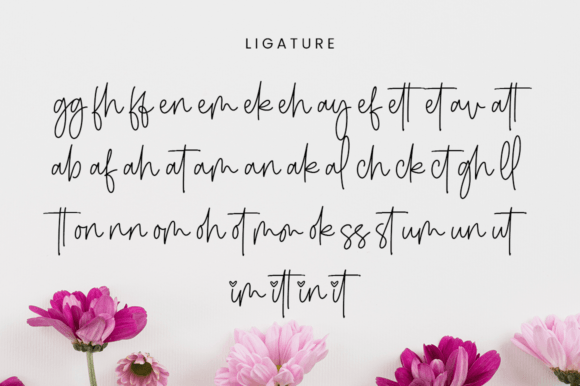 LIGATURE
gg fh ff en em ek eh ay ef ett et av att
ab af ah at am an ak al ch ck ct gh ll
tt on nn om oh ot mm ok ss st um un ut
im itt in it